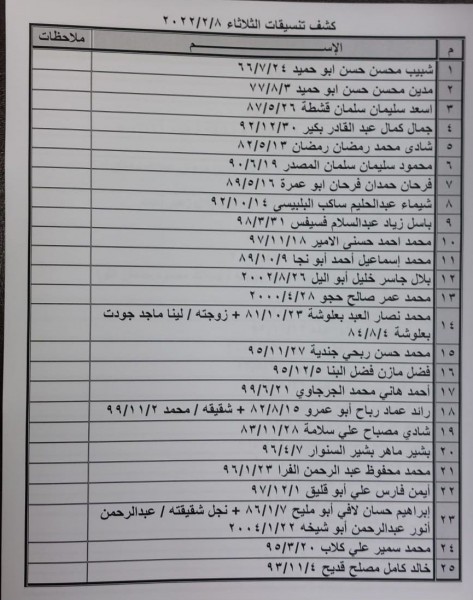 كشف تنسيقات الثلاثاء ٢٠٢٢/٢/٨
م الإســـــم ملاحظات
١ شبيب محسن حسن ابو حميد ٦٦/٧/٢٤
٢ مدين محسن حسن ابو حميد ٧٧/٨/٣
٣ اسعد سليمان سلمان قشطة ٨٧/٥/٢٦
٤ جمال كمال عبد القادر بكير ٩٢/١٢/٣٠
٥ شادى محمد رمضان رمضان ٨٢/٥/١٣
٦ محمود سليمان سلمان المصدر ٩٠/٦/١٩
٧ فرحان حمدان فرحان ابو عمرة ٨٩/٥/١٦
٨ شيماء عبدالحليم ساكب البلبيسي ٩٢/١٠/١٤
٩ باسل زياد عبدالسلام فسيفس ٩٨/٣/٣١
١٠ محمد احمد حسنى الامير ٩٧/١١/١٨
١١ محمد إسماعيل أحمد أبو نجا ٨٩/١٠/٩
١٢ بلال جاسر خليل أبو اليل ٢٠٠٢/٨/٢٦
١٣ محمد عمر صالح حجو ٢٠٠٠/٤/٢٨
١٤ محمد نصار العبد بعلوشة ٨١/١٠/٢٣ + زوجته / لينا ماجد جودت
بعلوشة ٨٤/٨/٤
١٥ محمد حسن ربحي جندية ٩٥/١١/٢٧
١٦ فضل مازن فضل البنا ٩٥/١٢/٥
١٧ أحمد هاني محمد الجرجاوي ٩٩/٦/٢١
١٨ رائد عماد رباح أبو عمرو ٨٢/٨/١٥ + شقيقه / محمد ٩٩/١١/٢
١٩ شادي مصباح علي سلامة ٨٣/١١/٢٨
٢٠ بشير ماهر بشير السنوار ٩٦/٤/٧
٢١ محمد محفوظ عبد الرحمن الفرا ٩٦/١/٢٣
٢٢ أيمن فارس علي أبو قليق ٩٧/١٢/١
٢٣ إبراهيم حسان لافي أبو مليح ٨٦/١/٧ + نجل شقيقته / عبدالرحمن
أنور عبدالرحمن أبو شيخه ٢٠٠٤/١/٢٢
٢٤ محمد سمير علي كلاب ٩٥/٣/٢٠
٢٥ خالد كامل مصلح قديح ٩٣/١١/٤